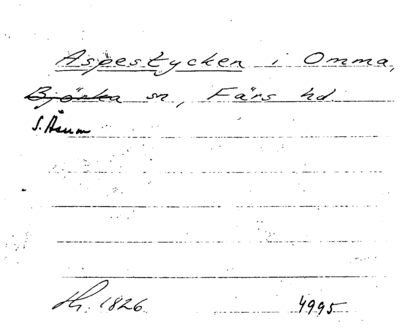 Aspestycken i Omma,
Björka sn, Färs hd
S. Åsum
Lh. 1826 4995